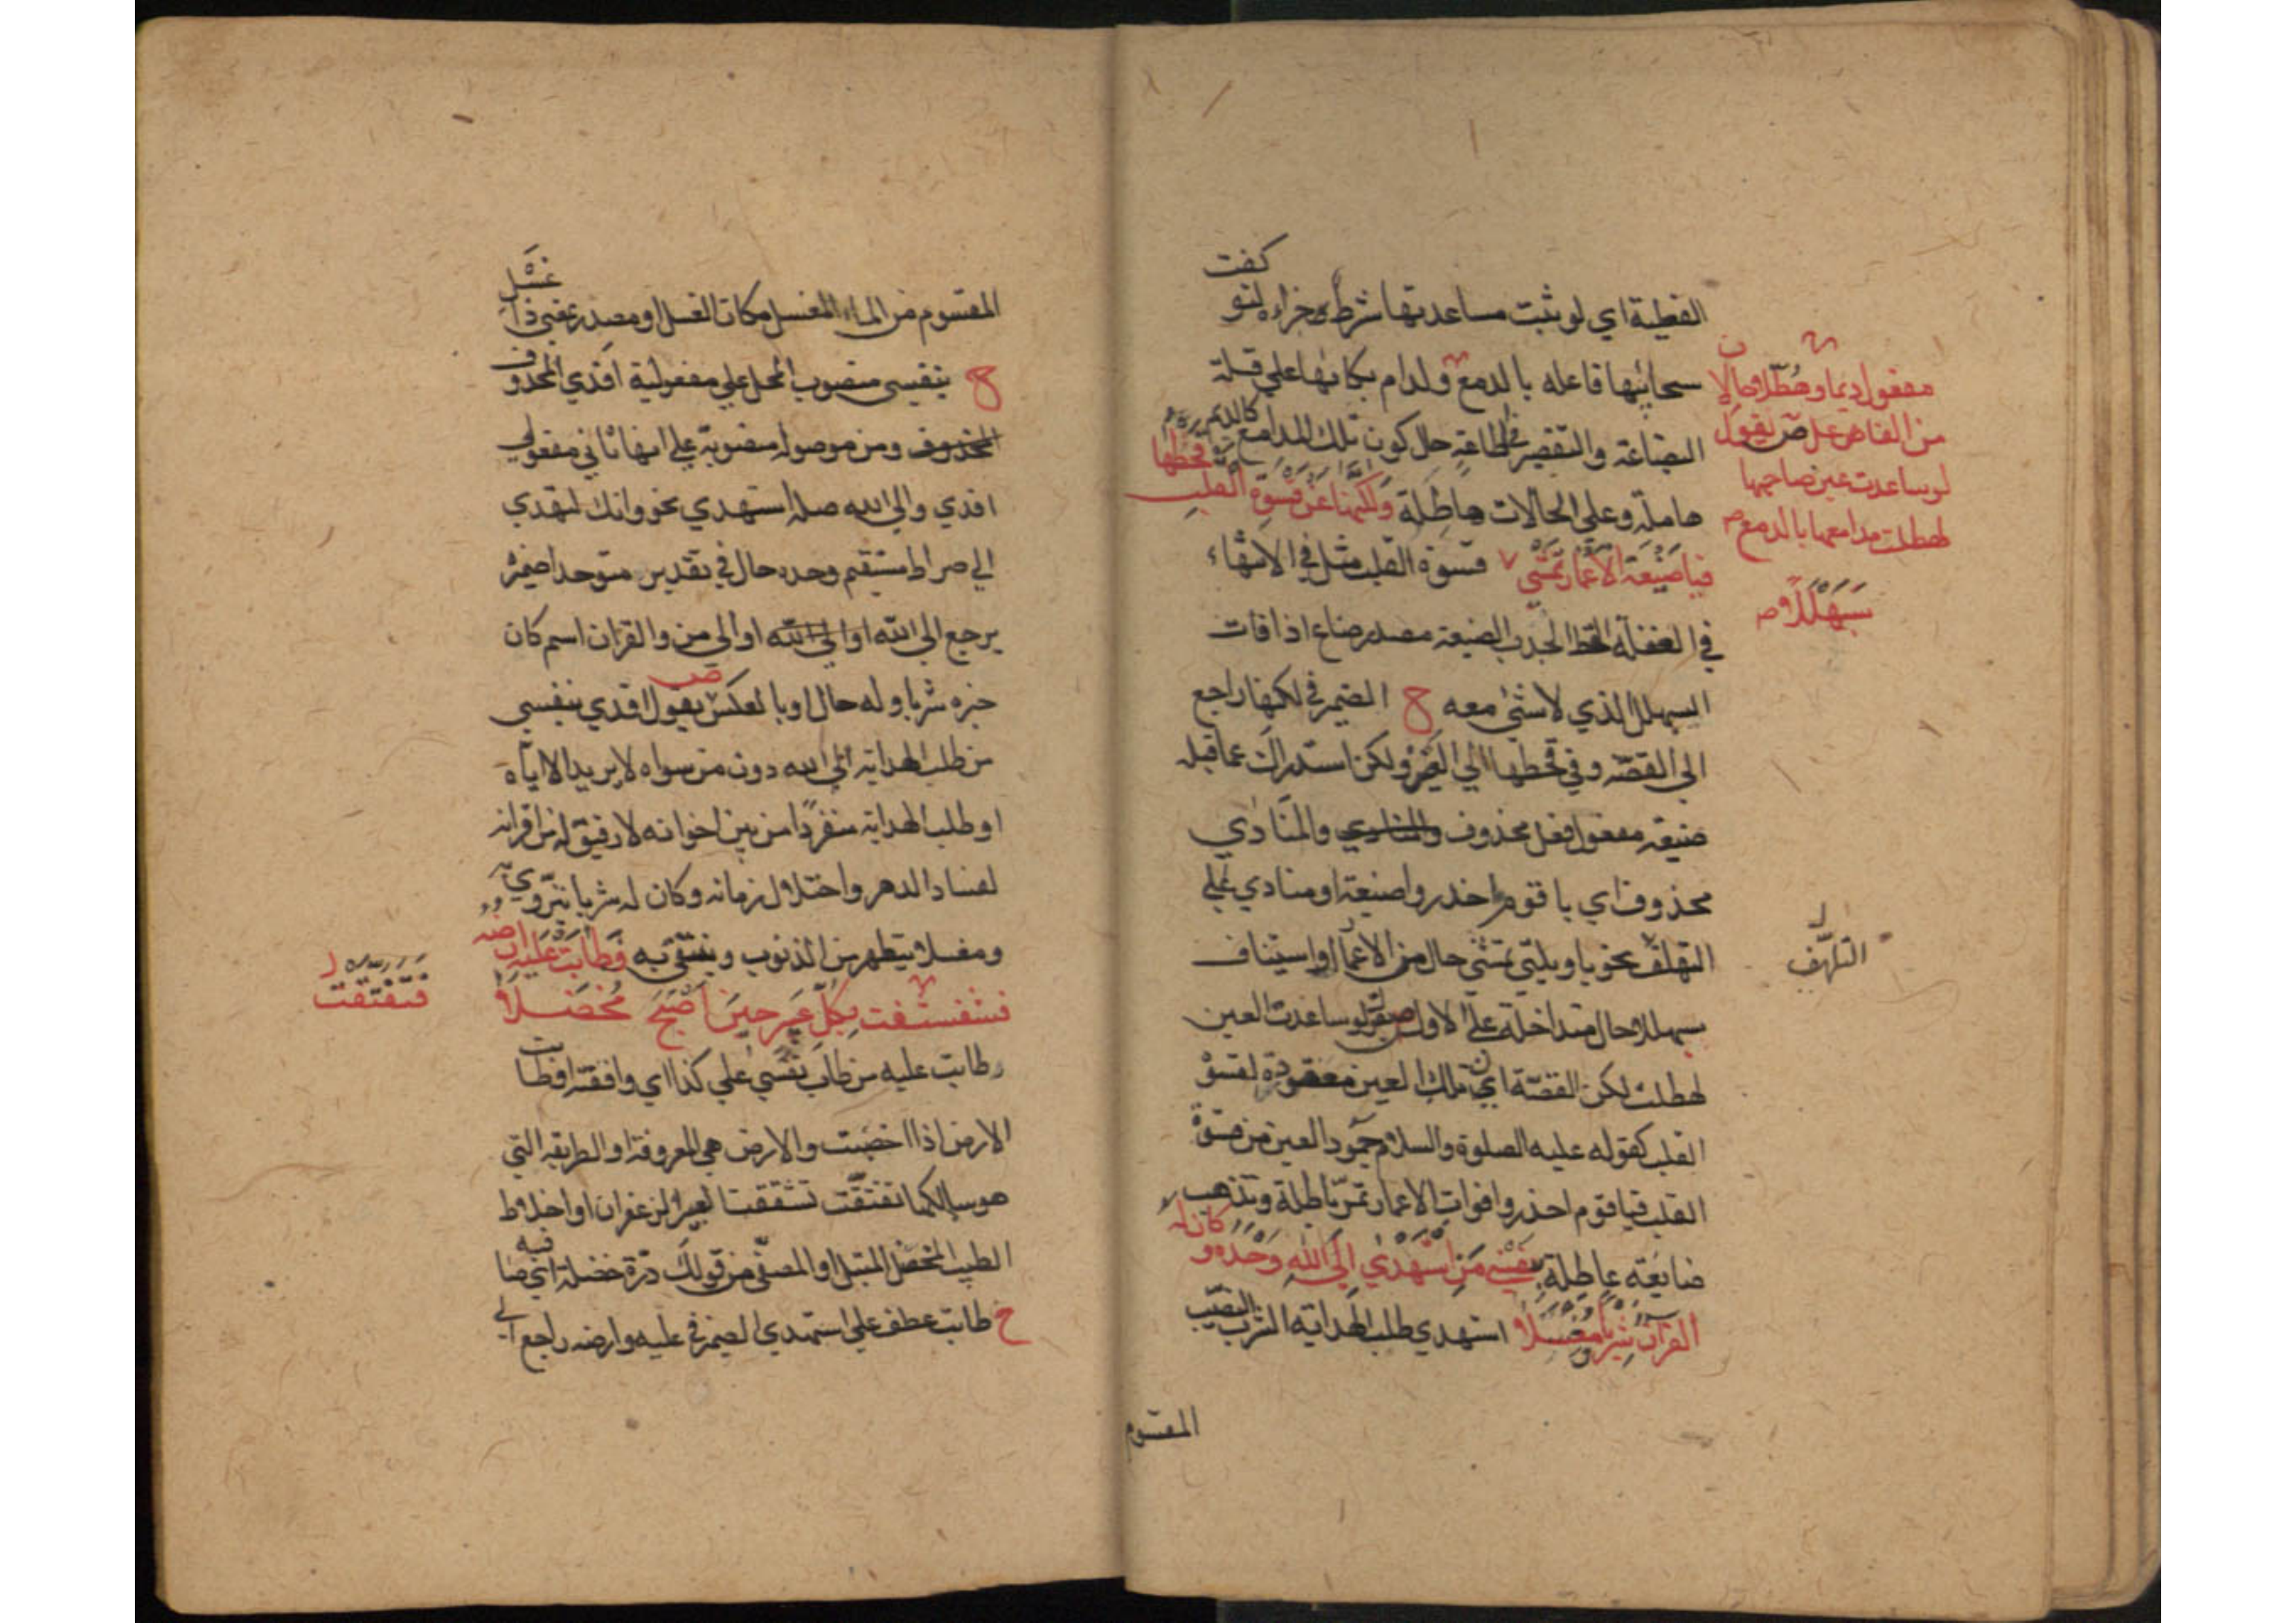 كفت
القطية اي لو ثبت مساعدتها شرط وجزاؤه لتو
سحائبها فاعله بالدمع ولدام بكائها على قلة
البضاعة والتقصير في الطاعة حال كون تلك المدامع كالديم
هاملة وعلى الحالات هاطلة ولكنها عن قسوة القلب قحطها
فيا ضيعة الاعمار تمشي قسوة القلب مثل في الانتهاء
في الغفلة القحط الجدب الضيعة مصدر ضاع اذا فات
السبهلل الذي لا شئ معه ح الضمير في لكنها راجع
الى القصة وفي قحطها الى العين ولكن استدراك عما قبله
ضيعة مفعول فعل محذوف والمنادي والمنادي
محذوف اي يا قوم احذروا ضيعة او منادي على
التهلف نحو يا ويلتي تمشي حال من الاعمار او استيناف
سبهللا وحال متداخلة على الاول ص يقول لو ساعدت العين
لهطلت لكن القصة اي تلك العين معقودة لقسوة
القلب كقوله عليه الصلوة والسلام جمود العين من قسوة
القلب فيا قوم احذروا فوات الاعمار تمر باطلة وتذهب
ضايعة عاطلة بنفسي من استهدي الى الله وحده وكان له
القران شربا ومغسلا استهدي طلب الهداية الشرب النصيب
المقسوم
مفعول ديما وهطلا وحالا
من الفاعل ص يقول
لو ساعدت عين صاحبها
لهطلت مدامعها بالدمع
سبهللا
التلهف
المقسوم من الماء المغسل مكان الغسل او مصدر بمعنى ذا غسل
ح بنفسي منصوب المحل على مفعولية افدي المحذوف
المحذوف ومن موصولة منصوبة على انها ثاني مفعولي
افدي والى الله صلة استهدي نحو وانك لتهدي
الى صراط مستقيم وحده حال في تقدير متوحدا ضميره
يرجع الى الله او الى الله او الى من والقران اسم كان
خبره شربا وله حال او بالعكس ص يقول افدي بنفسي
من طلب الهداية الى الله دون من سواه لا يريد الا اياه
او طلب الهداية منفردا من بين اخوانه لا رفيق له من اقرانه
لفساد الدهر واختلال زمانه وكان له شربا يتروى به
ومغسلا يتطهر من الذنوب وينتقي به فطابت عليه ارضه
فتفتقت بكل عبير حين اصبح مخضلا
طابت عليه من طاب نفسي على كذا اي وافقته او طابت
الارض اذا اخصبت والارض هي المعروفة او الطريقة التي
هو سالكها تفتقت تشققت العبير الزعفران او اخلاط
الطيب المخضل المبتل او المصفى من قولك درة خضلة اي صافية
ح طابت عطف على استهدي الضمير في عليه وارضه راجع الى
فتفتقت